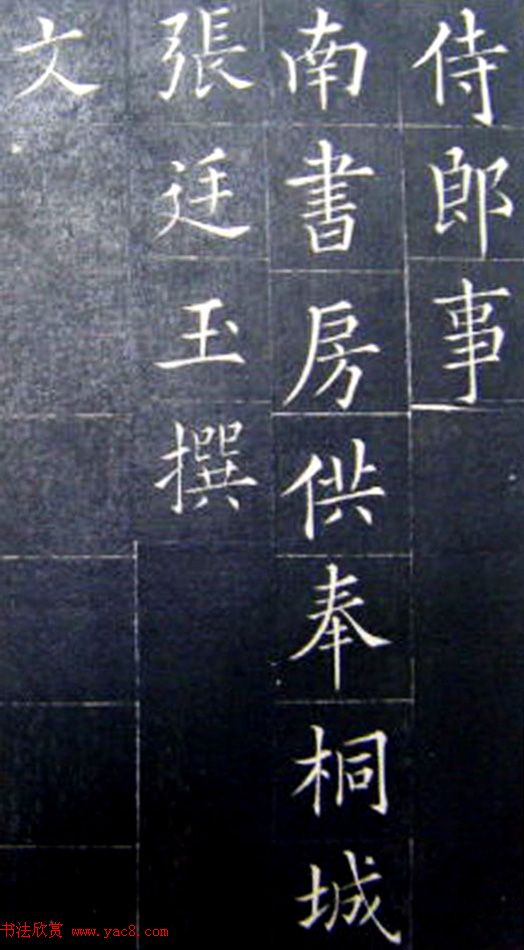 侍郎事
南書房供奉桐城
張廷玉撰
文
书法欣赏 www.yac8.com